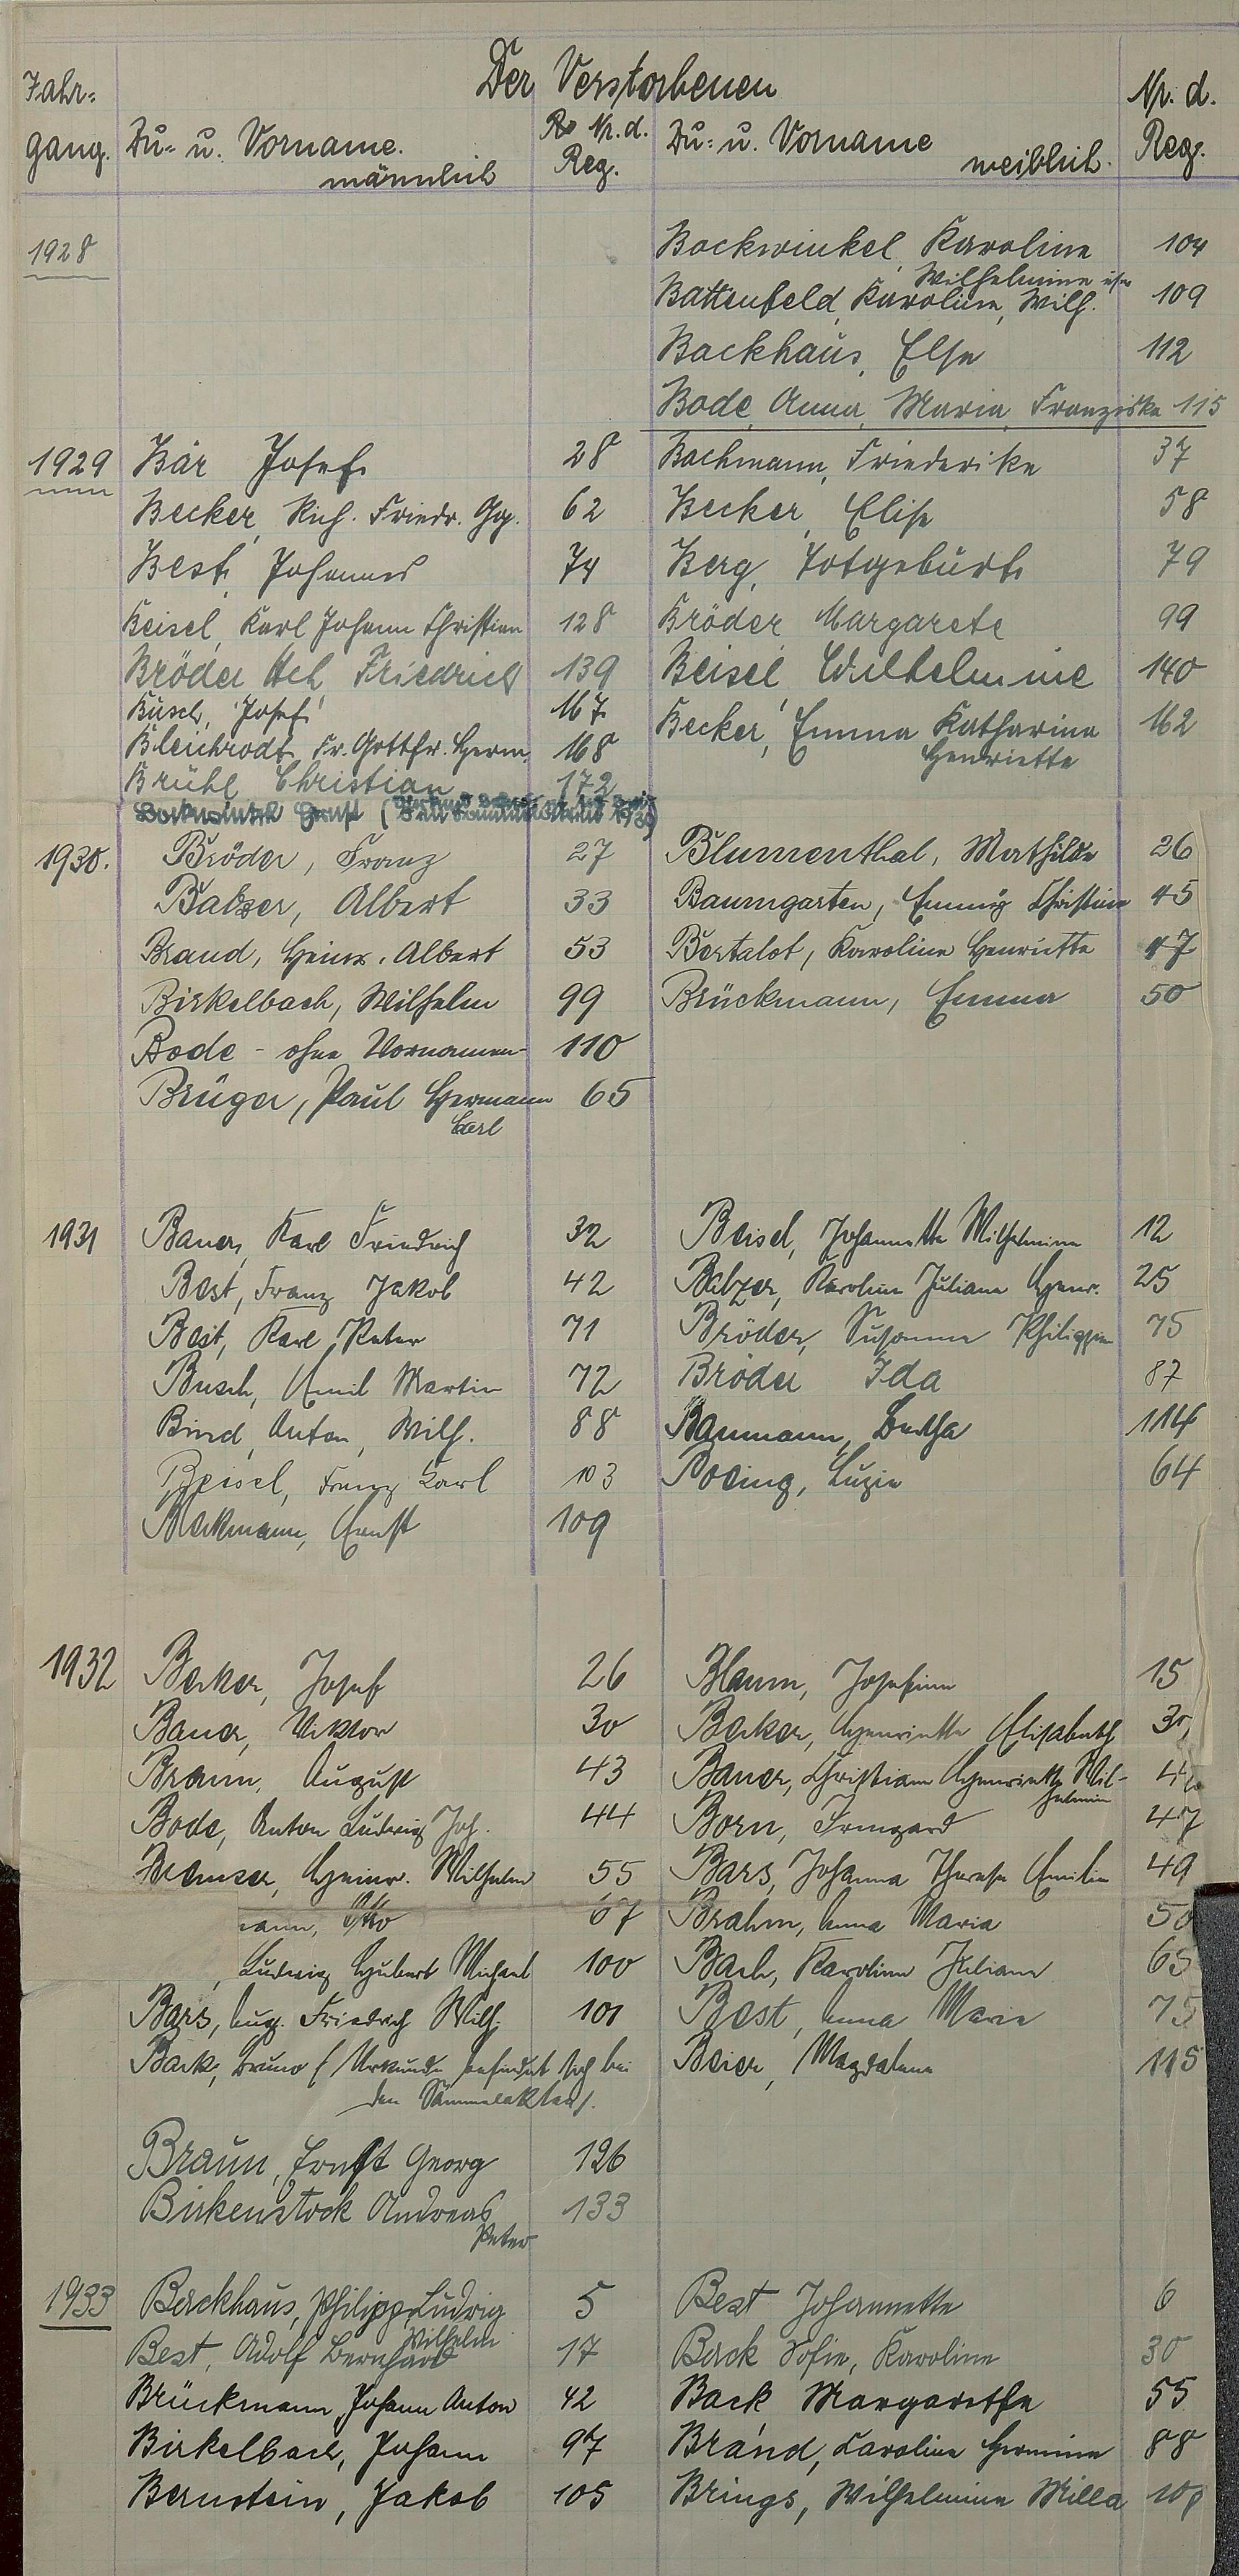 Der Verstorbenen
Jahr-
gang. Zu- u. Vorname. männlich Nr. d. Reg. Zu- u. Vorname weiblich. Nr. d. Reg.
1928 Bockwinkel, Karoline 104
Wilhelmine
Battenfeld, Karoline, Wilh. 109
Backhaus, Else 112
Bode, Anna, Maria, Franziska 115
1929 Bär Josef 28 Bachmann, Friederike 37
Becker, Rich. Friedr. 62 Becker, Elise 58
Best, Johannes 74 Berg, Totgeburt 79
Beisel, Karl Johann Christian 128 Bröder Margarete 99
Bröder Hch Friedrich 139 Beisel Wilhelmine 140
Busch, Josef 167 Becker, Emma Katharina 162
Henriette
Bleichrodt, Fr. Gottfr. Herm. 168
Brühl Christian 172
Bockwinkel Ernst
1930. Bröder, Franz 27 Blumenthal, Mathilde 26
Balzer, Albert 33 Baumgarten, Christine 45
Brand, Heinr. Albert 53 Bertalot, Karoline Henriette 47
Birkelbach, Wilhelm 99 Brückmann, Emma 50
Bode - ohne Vornamen - 110
Brüger, Paul Hermann 65
Carl
1931 Bauer, Karl Friedrich 32 Beisel, Johannette Wilhelmine 12
Best, Franz Jakob 42 Balzer, Karoline Juliane Henr. 25
Best, Karl Peter 71 Bröder, Susanne Philippine 75
Busch, Emil Martin 72 Bröder Ida 87
Bind, Anton, Wilh. 88 Baumann, Bertha 114
Beisel, Franz Karl 103 Boeing, Luzie 64
Ernst 109
1932 Becker, Josef 26 Blaum, Josefine 15
Bauer, Viktor 30 Becker, Henriette Elisabeth 30
Braun, August 43 Bauer, Christiane Henriette Wil-
helmine
Bode, Anton Ludwig Joh. 44 Born, Irmgard 47
Bremser, Heinr. Wilhelm 55 Bars, Johanna Therese Emilie 49
mann, Otto 67 Brahm, Anna Maria 50
, Ludwig Hubert Michael 100 Bach, Karoline Juliane 65
Bars, Aug. Friedrich Wilh. 101 Best, Anna Marie 75
Back, Bruno (Urkunde befindet sich bei Beier, Magdalene 115
den Sammelakten).
Braun, Ernst Georg 126
Birkenstock Andreas 133
Peter
1933 Backhaus, Philipp, Ludwig 5 Best Johannette 6
Wilhelm
Best, Adolf Bernhard 17 Back Sofie, Karoline 30
Brückmann, Johann Anton 42 Back Margarethe 55
Birkelbach, Johann 97 Brand, Karoline Hermine 88
Bernstein, Jakob 105 Brings, Wilhelmine Milla 108